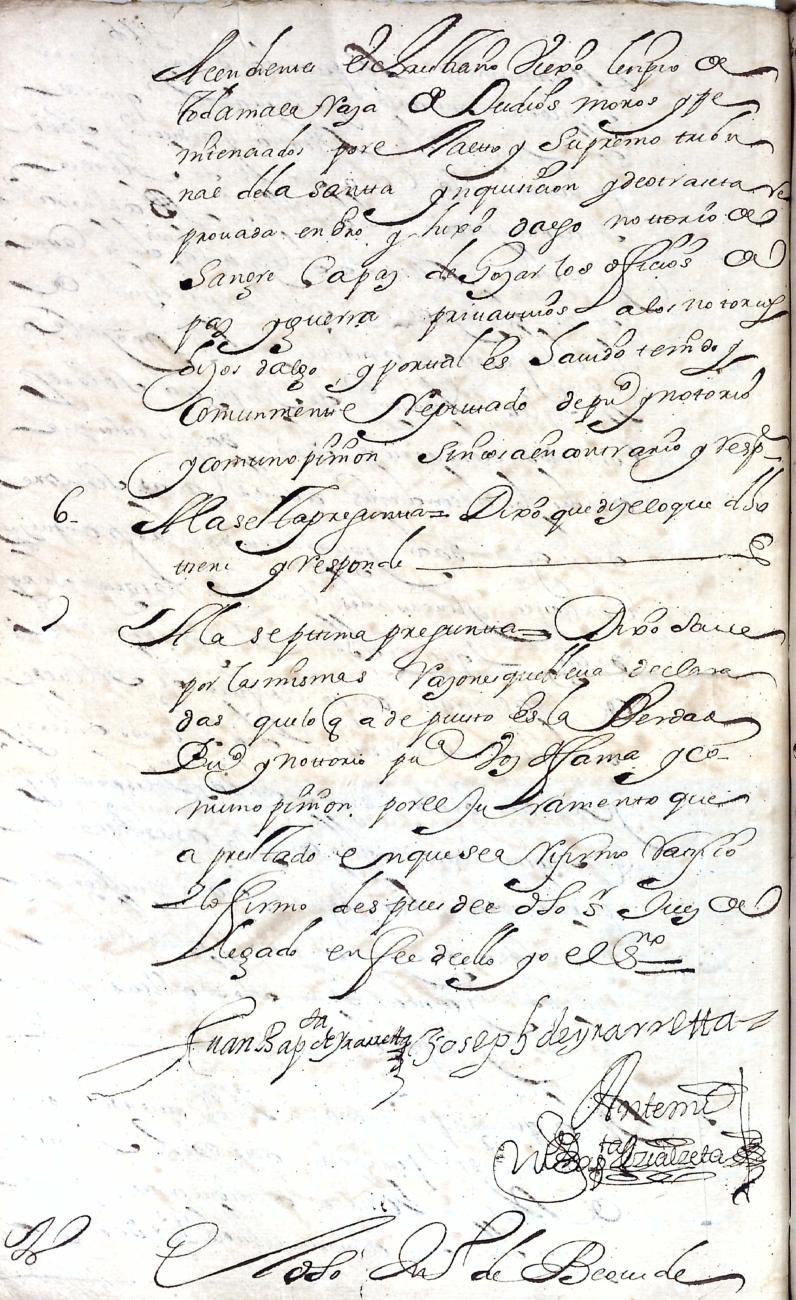 Acendientes es christiano Viexo limpio de
toda mala Raza de Judios moros y pe
nitenciados por el Santto y Supremo tribu
nal de la santta ynquisicion y de otra seta re
provada en dro y hixo dalgo nottorio de
Sangre Capaz de Gozar los officios de
paz y guerra privatibos a los notorios
hijos dalgo y por tal es havido tenido y
Comunmente Reputtado de puco y notorio
y comun opinion sin cosa en contrario y resp
6 A la sesta pregunta = Dixo que dize lo que dho
tiene y responde
7 A la septima pregunta = Dixo save
por las mismas razones que lleva declara
das que lo q a depuesto es la Verdad
puco y nottorio puca Voz y fama y co
mun opinion por el juramento que
a prestado en que se a Rifirmo Ratifico
y lo firmo despues del dho sr Juez de
legado en fee de ello yo el Sno
Juan Bapta de Yrarretta Joseph de yrarretta
Antemi
Bapta
Tgo Juo de